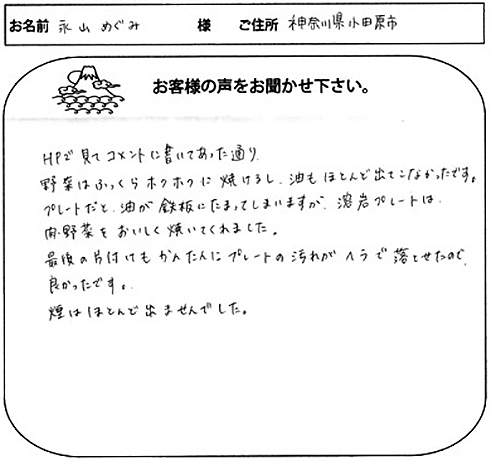 お名前 永山 めぐみ 様 ご住所 神奈川県小田原市
お客様の声をお聞かせ下さい。
HPで見てコメントに書いてあった通り
野菜はふっくらホクホクに焼けるし、油もほとんど出てこなかったです。
プレートだと、油が鉄板にたまってしまいますが、溶岩プレートは、
肉・野菜をおいしく焼いてくれました。
最後の片付けもかんたんにプレートの汚れがヘラで落とせたので、
良かったです。
煙はほとんど出ませんでした。